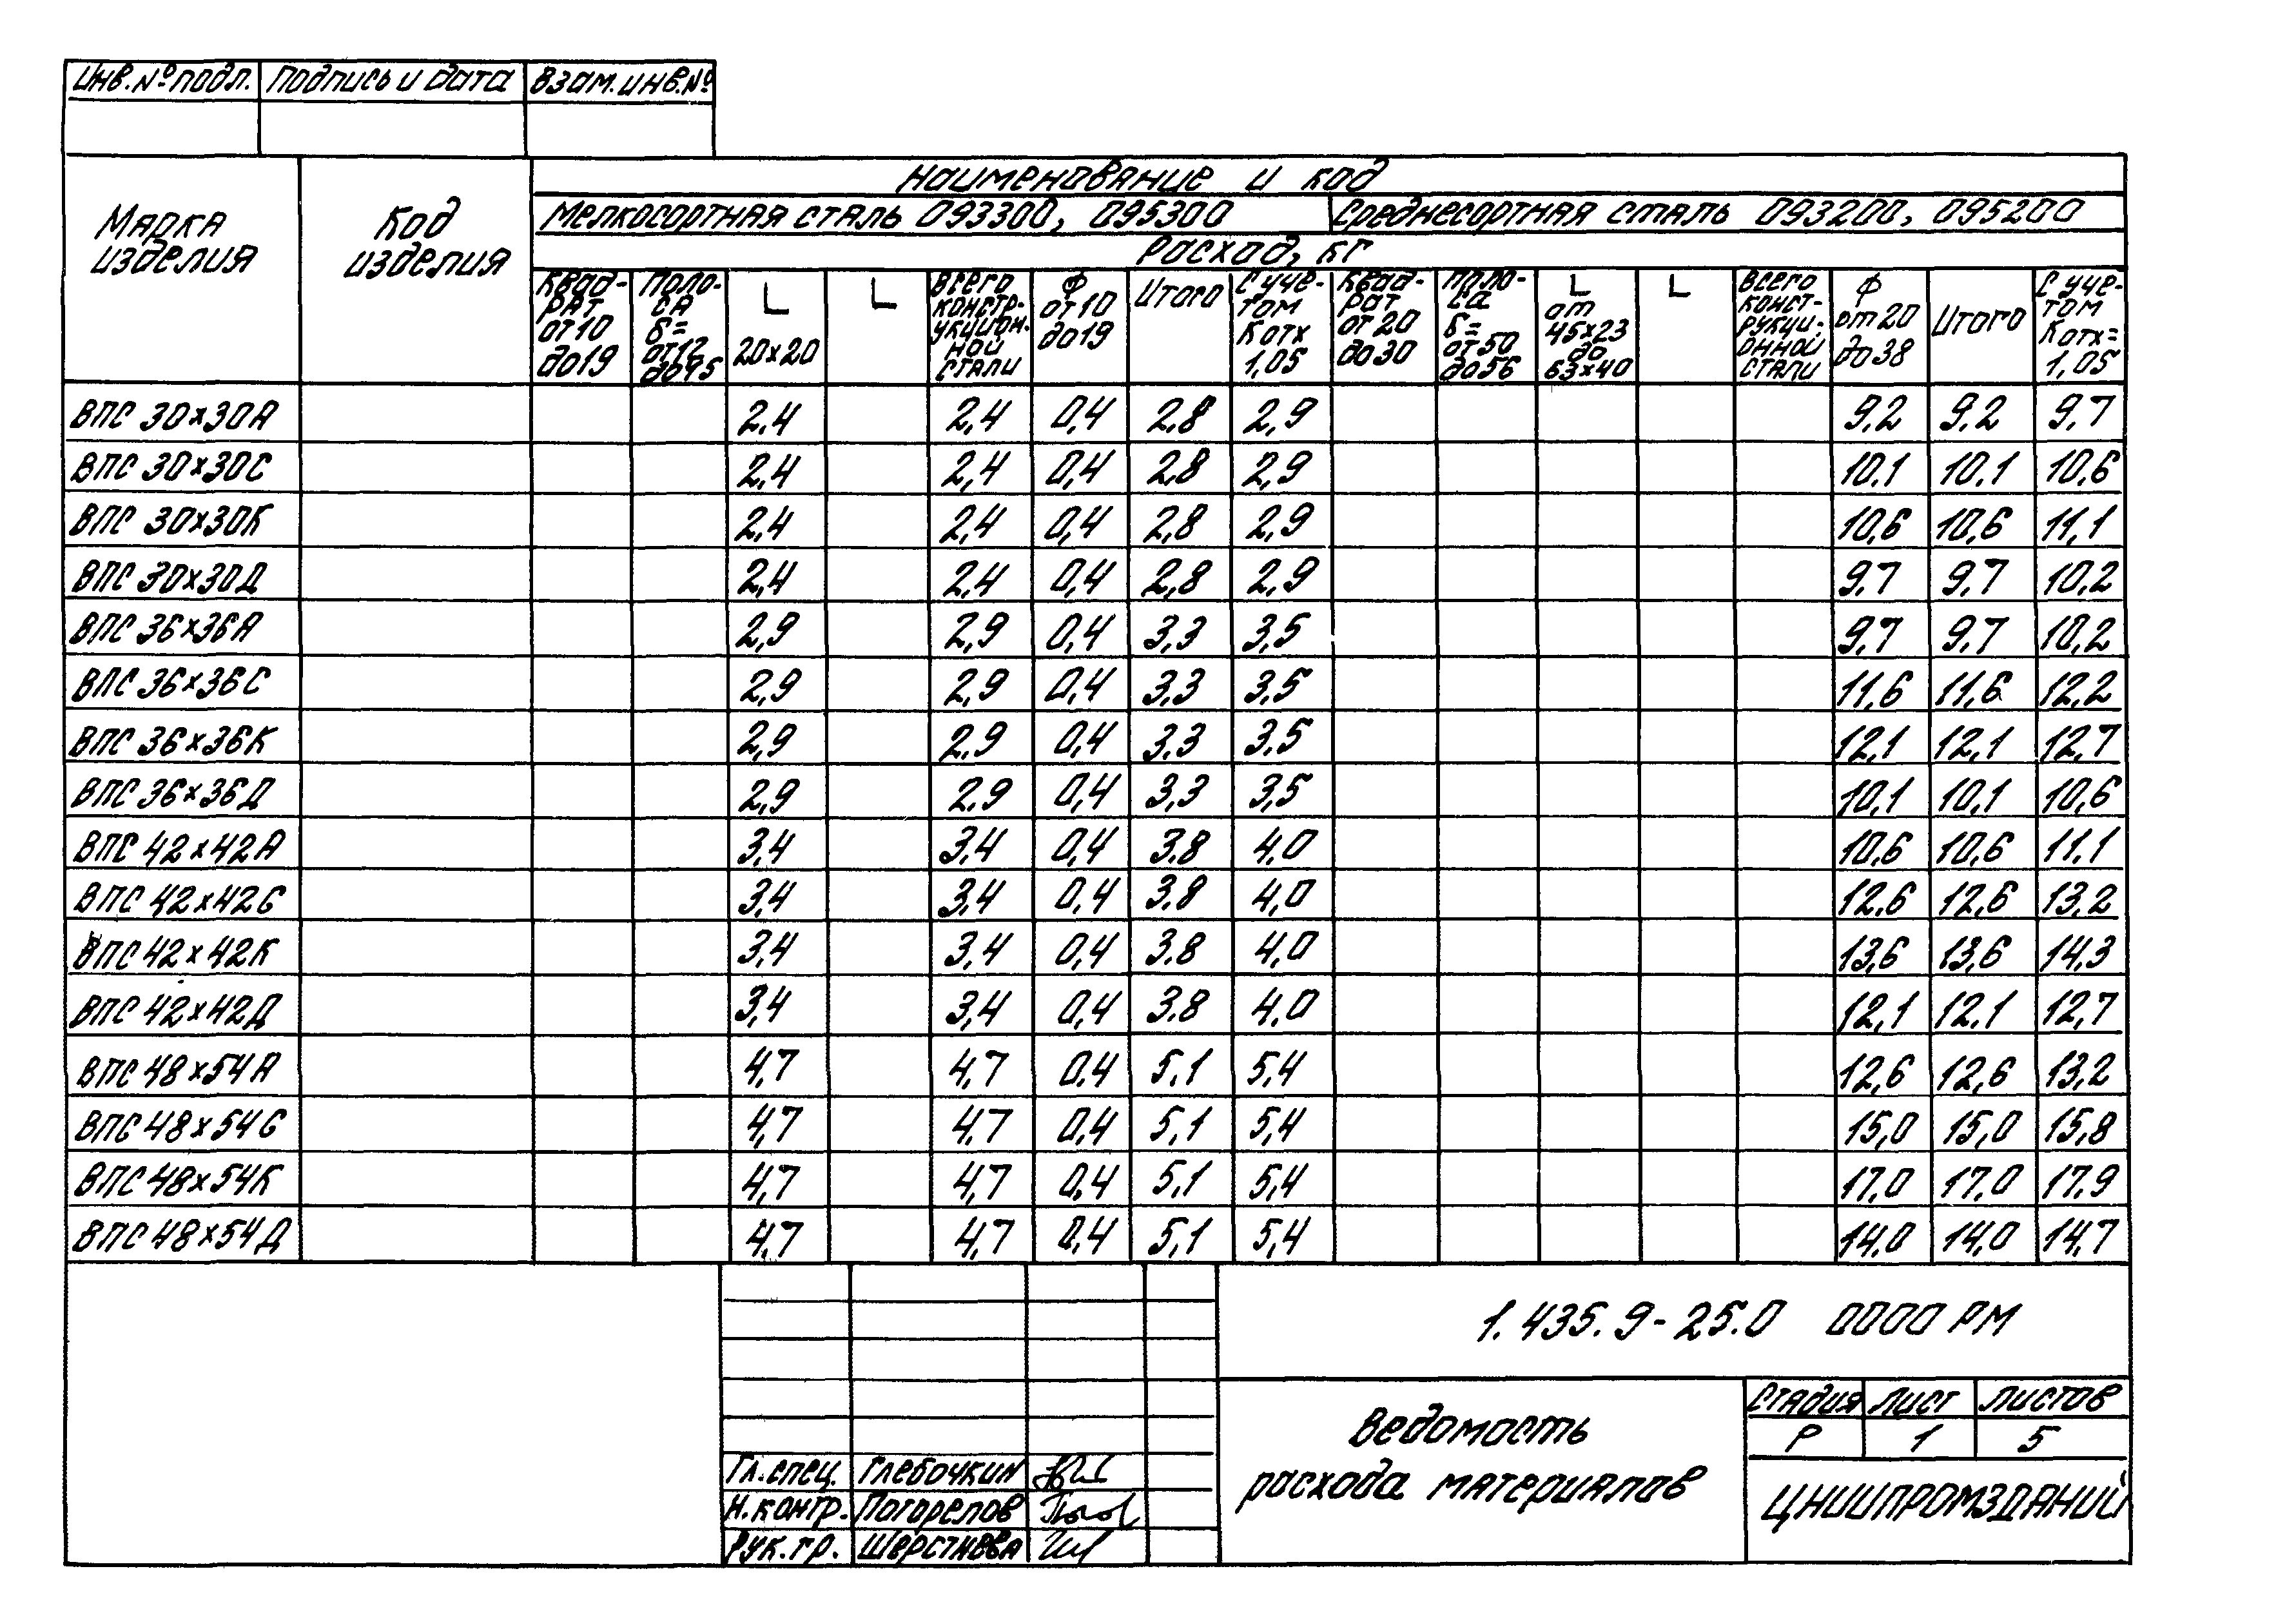 Инв.№подл. Подпись и дата Взам.инв.№
Марка изделия
Код изделия
Наименование и код
Мелкосортная сталь 093300, 095300 Среднесортная сталь 093200, 095200
Расход, кг
Квад-рат от 10 до 19
Поло-са δ= от12 до45
L 20×20
L
Всего констр-укцион.ной стали
Ф от 10 до 19
Итого
С уче-том Котх 1,05
Квад-рат от 20 до 30
Поло-са δ= от 50 до 56
L от 45×23 до 63×40
L
Всего конст-рукци-онной стали
Ф от 20 до 38
Итого
С уче-том Котх= 1,05
ВПС 30×30А 2,4 2,4 0,4 2,8 2,9 9,2 9,2 9,7
ВПС 30×30С 2,4 2,4 0,4 2,8 2,9 10,1 10,1 10,6
ВПС 30×30К 2,4 2,4 0,4 2,8 2,9 10,6 10,6 11,1
ВПС 30×30Д 2,4 2,4 0,4 2,8 2,9 9,7 9,7 10,2
ВПС 36×36А 2,9 2,9 0,4 3,3 3,5 9,7 9,7 10,2
ВПС 36×36С 2,9 2,9 0,4 3,3 3,5 11,6 11,6 12,2
ВПС 36×36К 2,9 2,9 0,4 3,3 3,5 12,1 12,1 12,7
ВПС 36×36Д 2,9 2,9 0,4 3,3 3,5 10,1 10,1 10,6
ВПС 42×42А 3,4 3,4 0,4 3,8 4,0 10,6 10,6 11,1
ВПС 42×42С 3,4 3,4 0,4 3,8 4,0 12,6 12,6 13,2
ВПС 42×42К 3,4 3,4 0,4 3,8 4,0 13,6 13,6 14,3
ВПС 42×42Д 3,4 3,4 0,4 3,8 4,0 12,1 12,1 12,7
ВПС 48×54А 4,7 4,7 0,4 5,1 5,4 12,6 12,6 13,2
ВПС 48×54С 4,7 4,7 0,4 5,1 5,4 15,0 15,0 15,8
ВПС 48×54К 4,7 4,7 0,4 5,1 5,4 17,0 17,0 17,9
ВПС 48×54Д 4,7 4,7 0,4 5,1 5,4 14,0 14,0 14,7
1.435.9-25.0 0000 РМ
Ведомость
расхода материалов
Стадия Лист Листов
Р 1 5
ЦНИИПРОМЗДАНИЙ
Гл.спец. Глебочкин
Н.контр. Погорелов
Рук.гр. Шерстнева